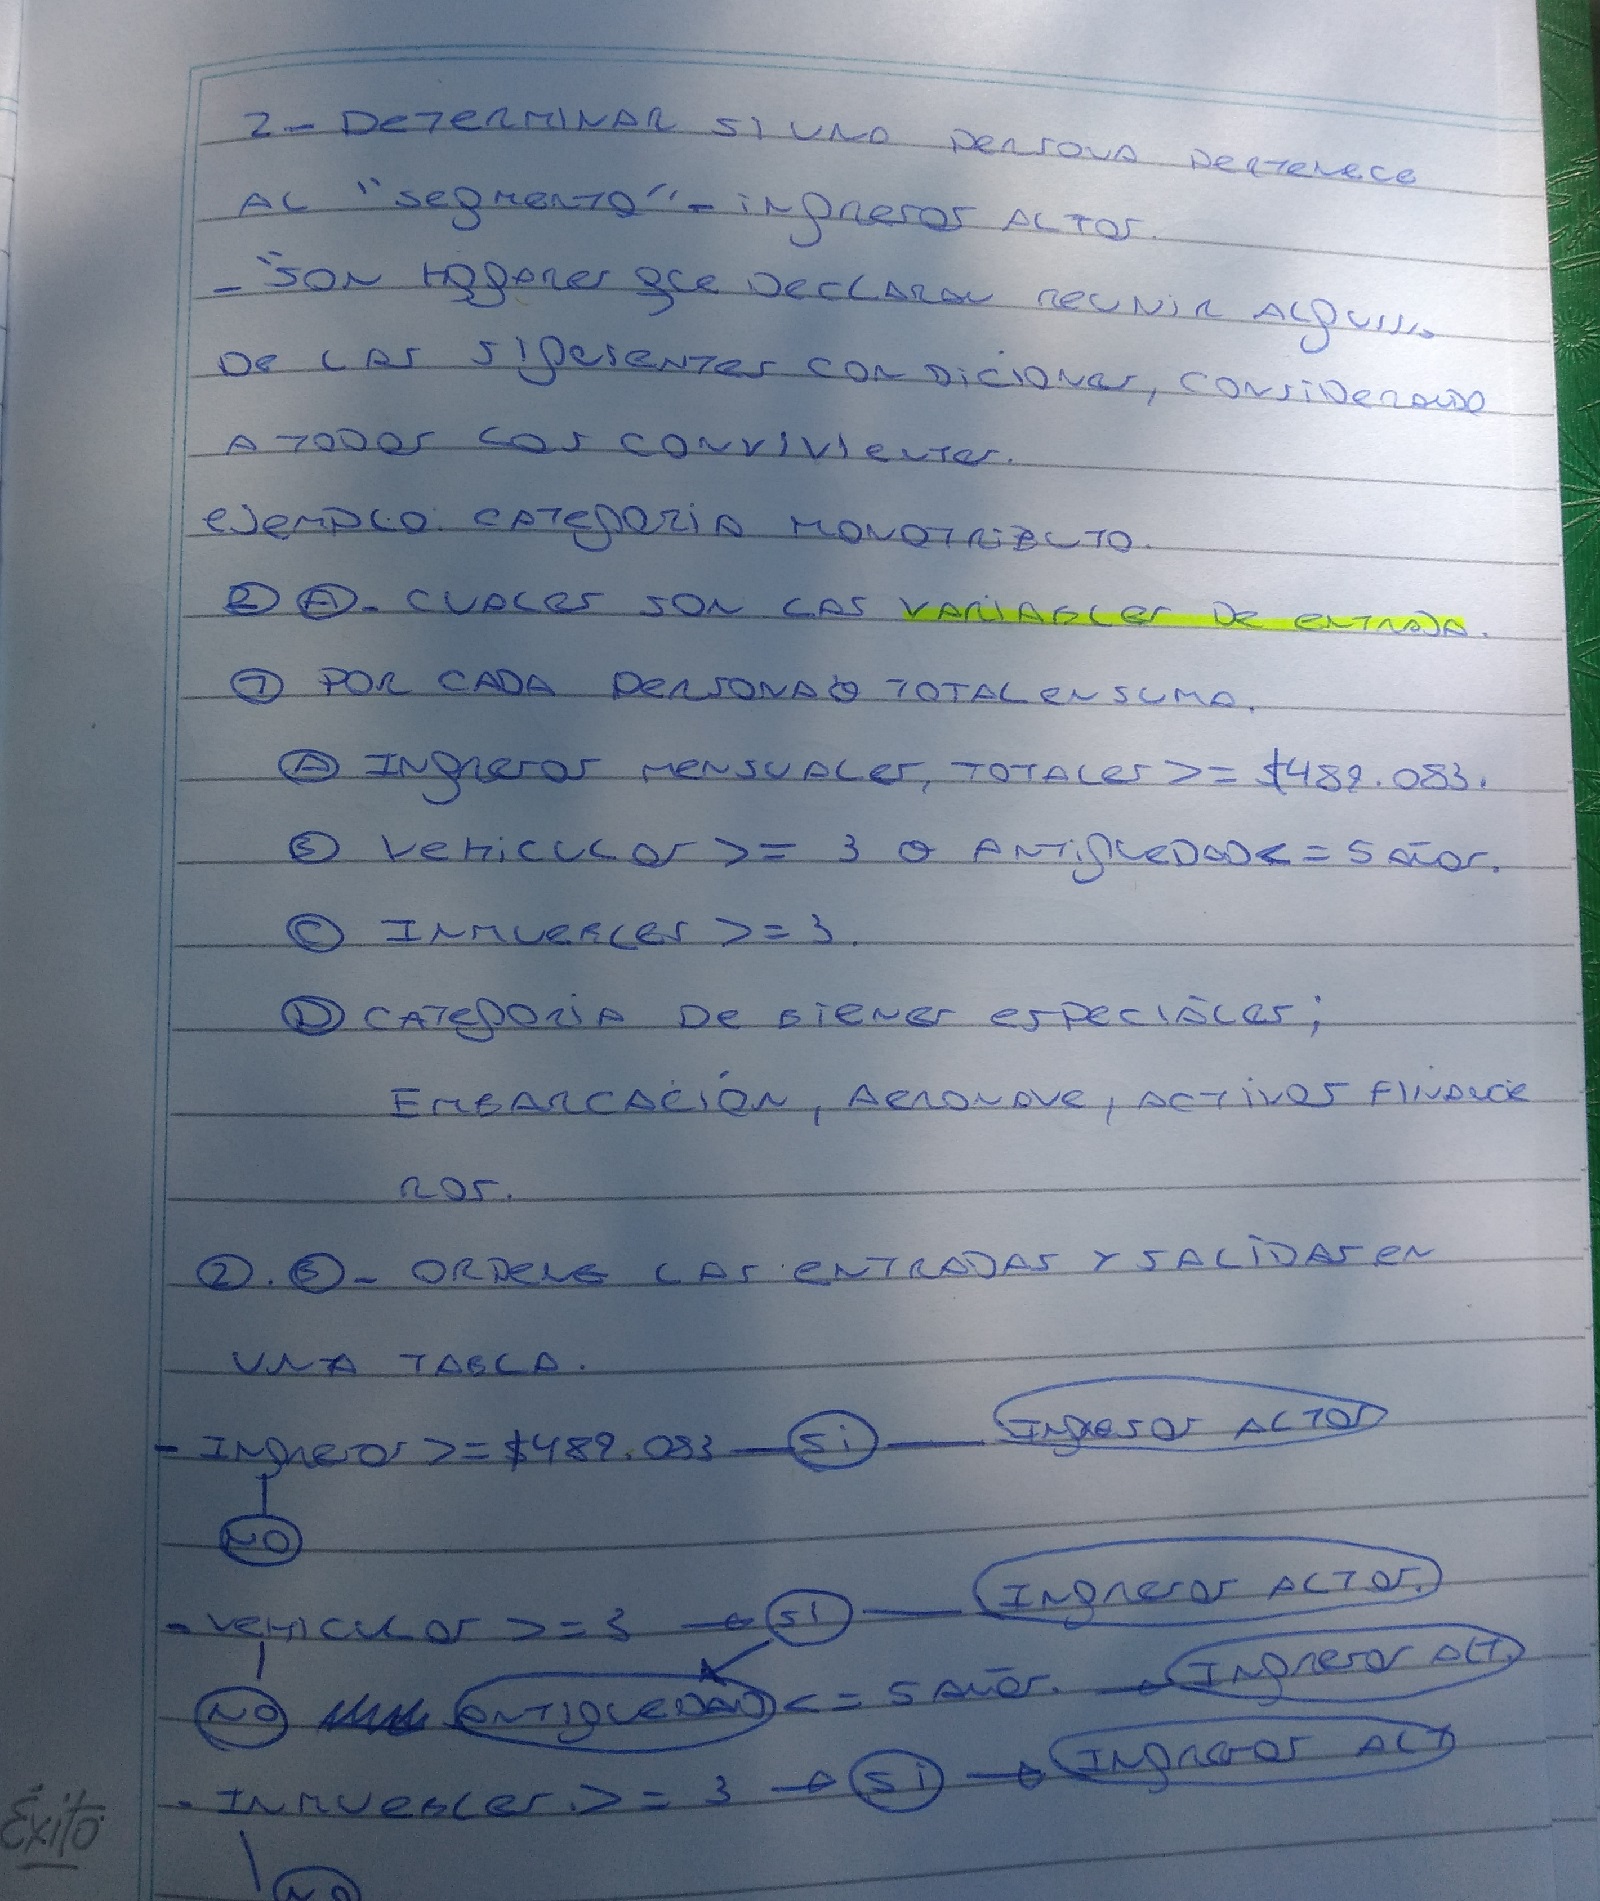 2- DETERMINAR SI UNA PERSONA PERTENECE
AL "SEGMENTO"- INGRESOS ALTOS.
- "SON HOGARES QUE DECLARAN REUNIR ALGUNA
DE LAS SIGUIENTES CONDICIONES, CONSIDERANDO
A TODOS LOS CONVIVIENTES.
EJEMPLO: CATEGORIA MONOTRIBUTO.
2 A- CUALES SON LAS VARIABLES DE ENTRADA.
1 POR CADA PERSONA O TOTAL EN SUMA.
A INGRESOS MENSUALES, TOTALES >= $489.083.
B VEHICULOS >= 3 O ANTIGUEDAD <= 5 AÑOS.
C INMUEBLES >= 3.
D CATEGORIA DE BIENES ESPECIALES;
EMBARCACIÓN, AERONAVE, ACTIVOS FINANCIE
ROS.
2. B- ORDENE LAS ENTRADAS Y SALIDAS EN
UNA TABLA.
- INGRESOS >= $489.083 — SI — INGRESOS ALTOS
NO
- VEHICULOS >= 3 → SI — INGRESOS ALTOS.
NO ANTIGUEDAD <= 5 AÑOS. → INGRESOS ALT.
- INMUEBLES. >= 3 → SI → INGRESOS ALT
NO
Éxito